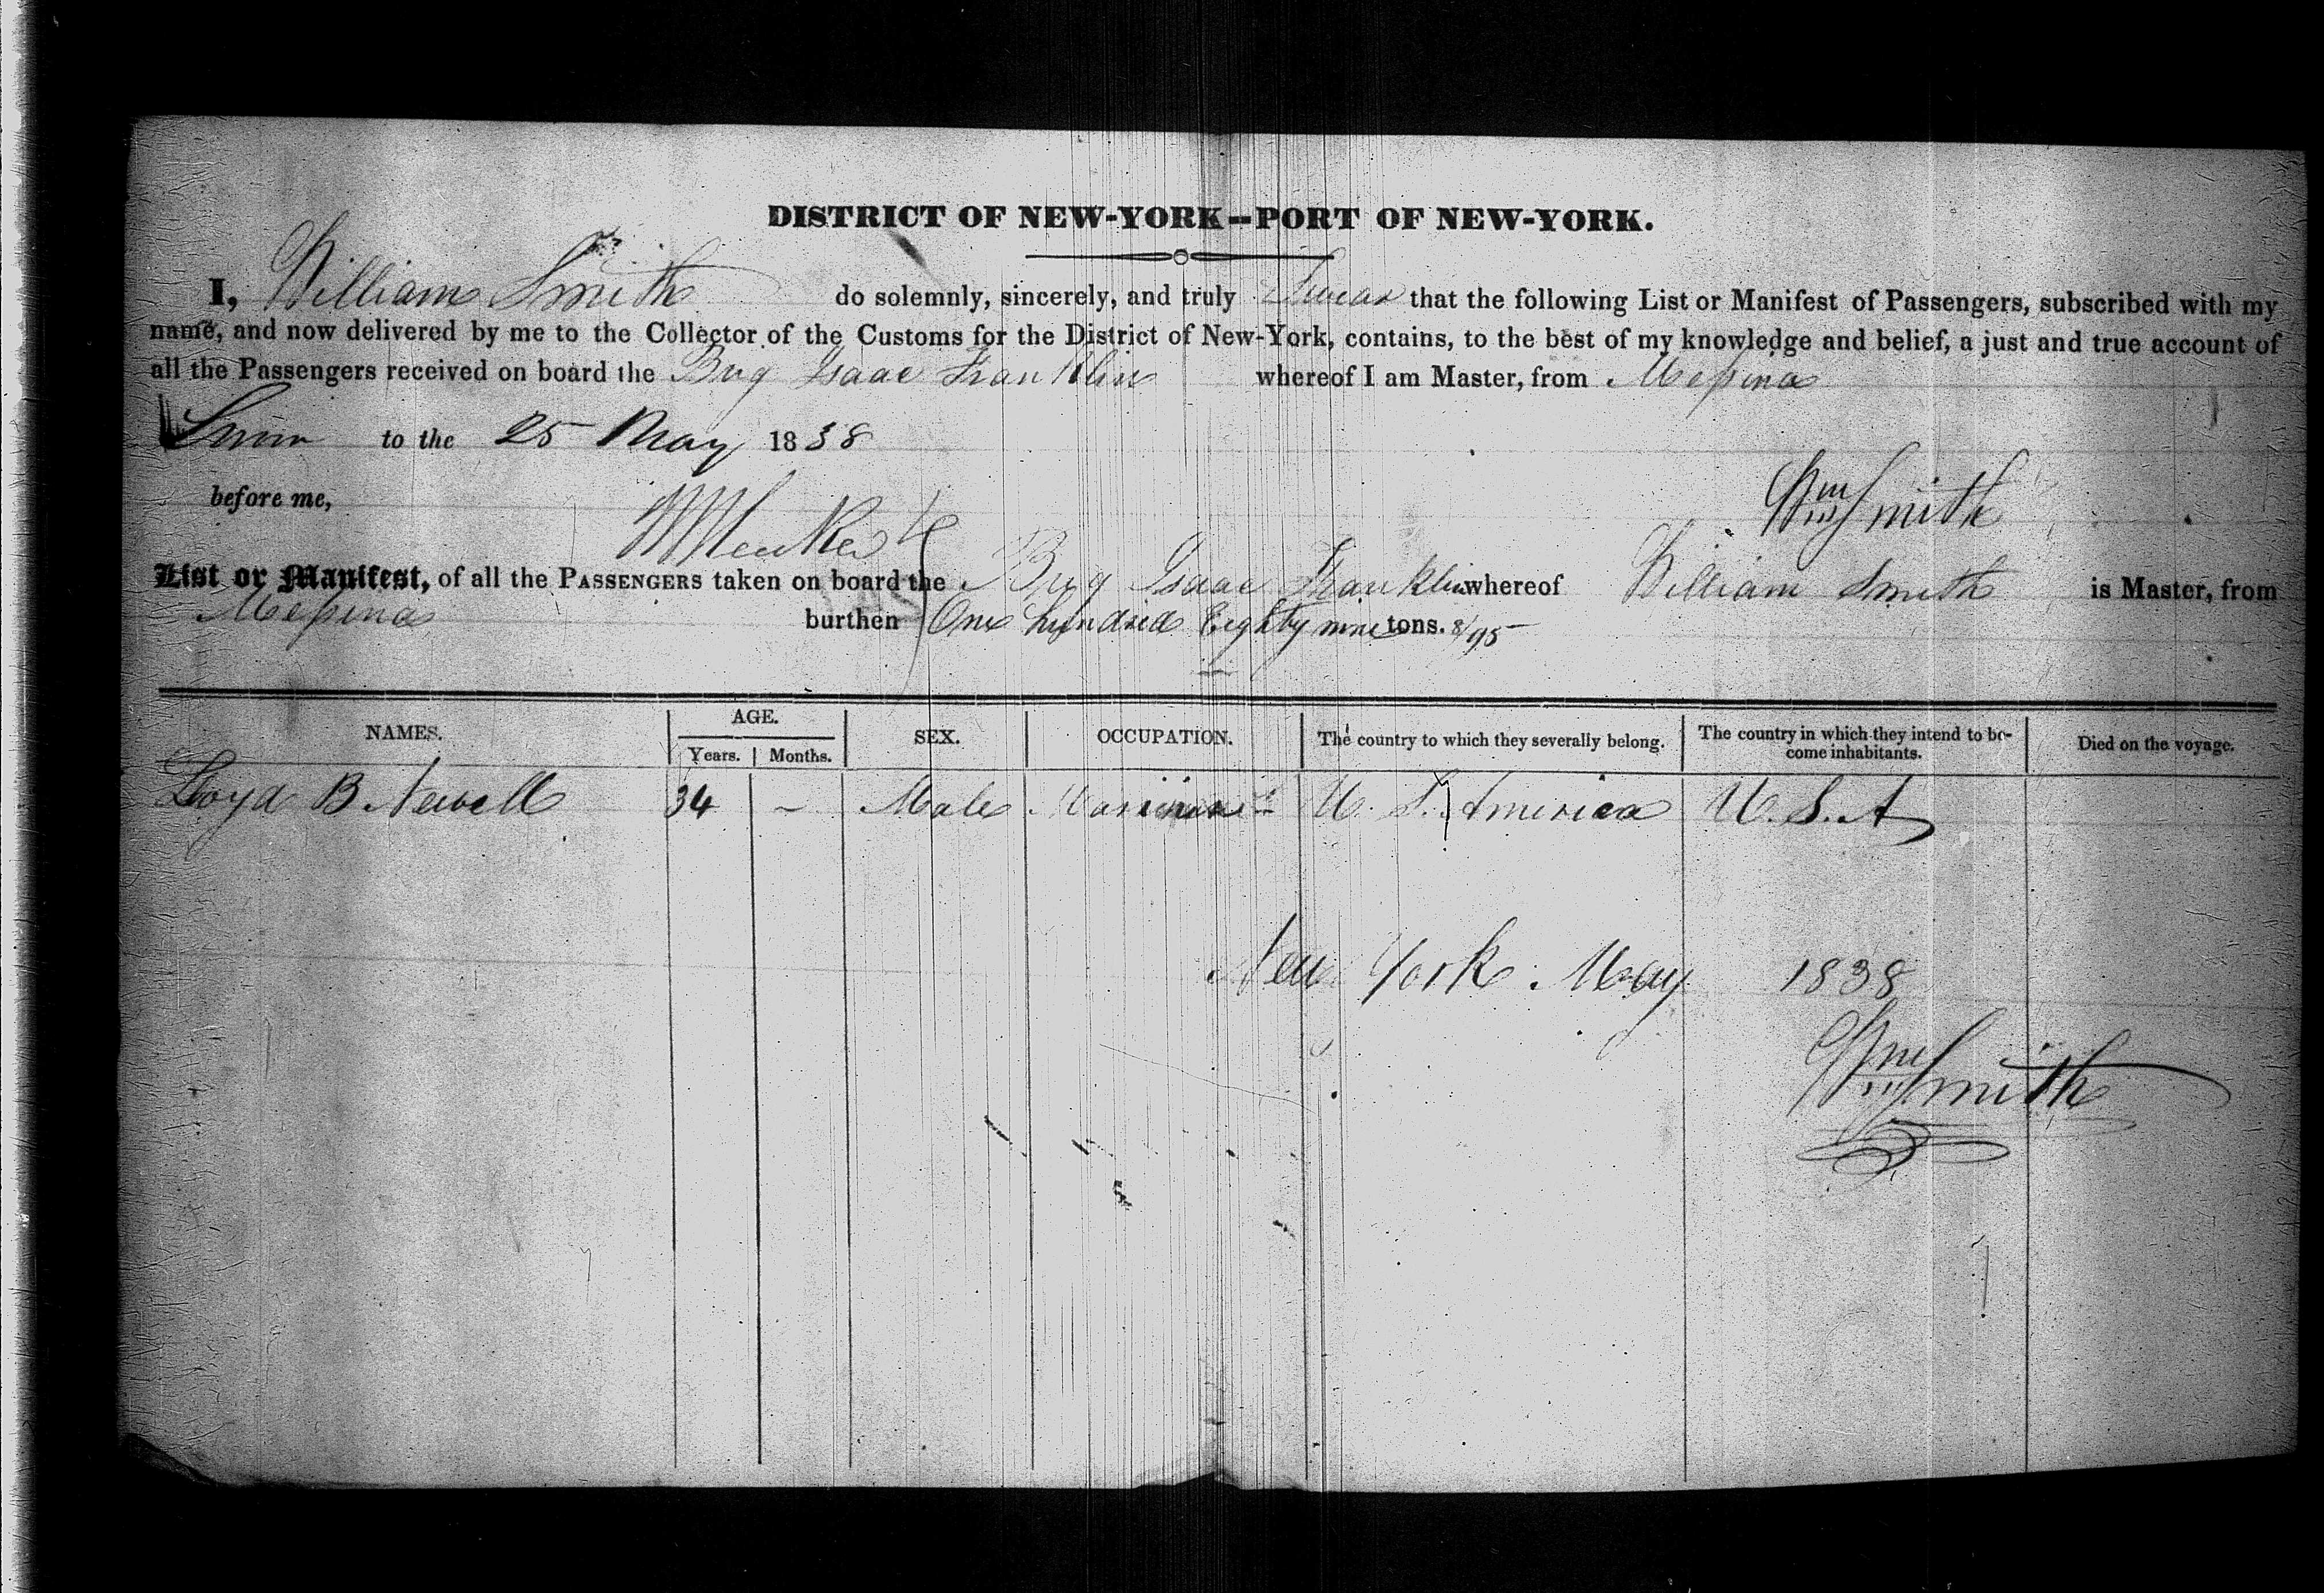 DISTRICT OF NEW-YORK--PORT OF NEW-YORK.
I, William Smith do solemnly, sincerely, and truly Swear that the following List or Manifest of Passengers, subscribed with my
name, and now delivered by me to the Collector of the Customs for the District of New-York, contains, to the best of my knowledge and belief, a just and true account of
all the Passengers received on board the Brig Isaac Franklin whereof I am Master, from Messina
Sworn to the 25 May 1838
before me,
Wm Smith
List or Manifest, of all the PASSENGERS taken on board the Brig Isaac Franklin whereof William Smith is Master, from
Messina burthen One hundred Eighty nine tons. 8/95
NAMES. AGE. Years. Months. SEX. OCCUPATION. The country to which they severally belong. The country in which they intend to become inhabitants. Died on the voyage.
Loyd B Newell 34 – Male Mariner U. S. America U. S. A
New York May 1838
Wm Smith